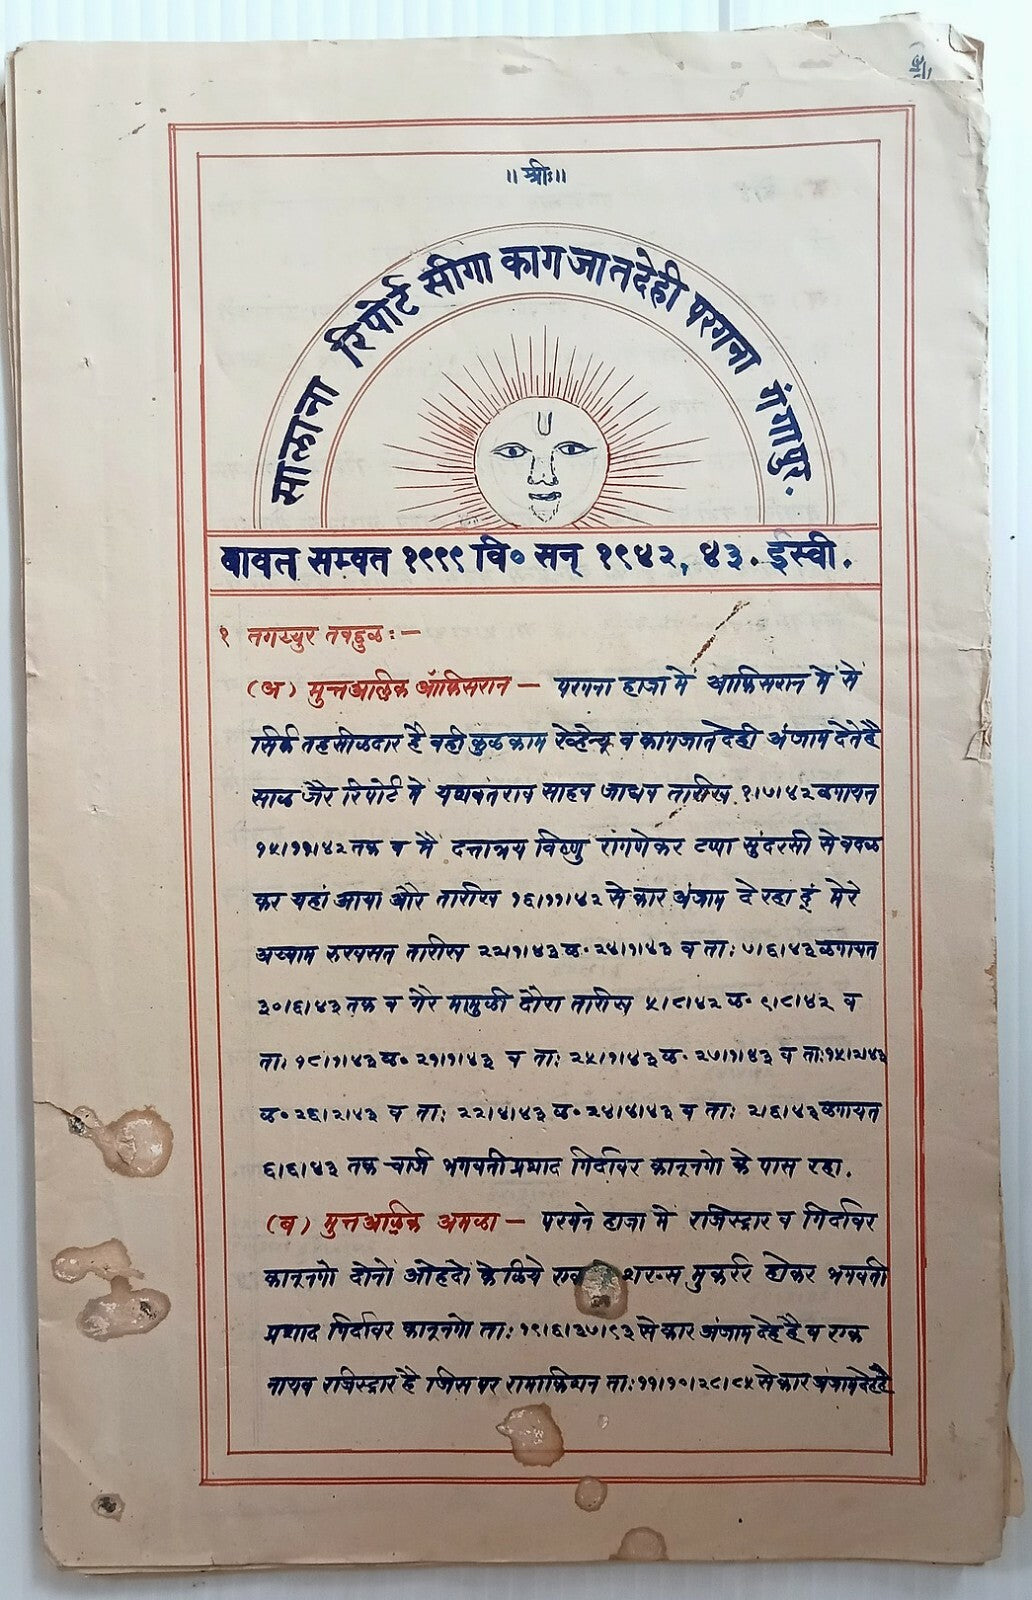 ॥ श्रीः॥
सालाना रिपोर्ट सीगा कागजातदेही परगना गंगापुर.
बाबत सम्वत १९९९ वि० सन् १९४२, ४३. ईस्वी.
१ तगय्युर तबद्दुल: —
(अ) मुत्तआलिक ऑफिसरान — परगना हाजा मे आफिसरान मे से
सिर्फ तहसीलदार है वही कुल काम रेव्हेन्यू व कागजातदेही अंजाम देते है
साल जैर रिपोर्ट मे यशवंतराव साहब जाधव तारीख १।७।४२ लगायत
१५।११।४२ तक व मै दत्तात्रय विष्णु रांगणेकर टप्पा सुंदरसी से बदल
कर यहां आया और तारीख १६।११।४२ से कार अंजाम दे रहा हूं मेरे
अय्याम रुखसत तारीख २२।१।४३ ल॰ २४।१।४३ व ता: ७।६।४३ लगायत
३०।६।४३ तक व गैर मामुली दौरा तारीख ५।८।४२ ल॰ ९।८।४२ व
ता: १८।१।४३ ल॰ २१।१।४३ व ता: २५।१।४३ ल॰ २७।१।४३ व ता: १५।२।४३
ल॰ २६।२।४३ व ता: २२।४।४३ ल॰ २४।४।४३ व ता: २।६।४३ लगायत
६।६।४३ तक चार्ज भगवतीप्रशाद गिर्दावर कानूनगो के पास रहा.
(ब) मुत्तआलिक अमला — परगने हाजा मे रजिस्ट्रार व गिर्दावर
कानूनगो दोनो ओहदो के लिये शख्स मुकर्रर होकर भगवती
प्रशाद गिर्दावर कानूनगो ता: १९।६।३७।९३ से कार अंजाम देहे है व एक
नायब रजिस्ट्रार है जिस पर रामाकिशन ता: ११।१०।२८।८५ से कार अंजाम देहे है